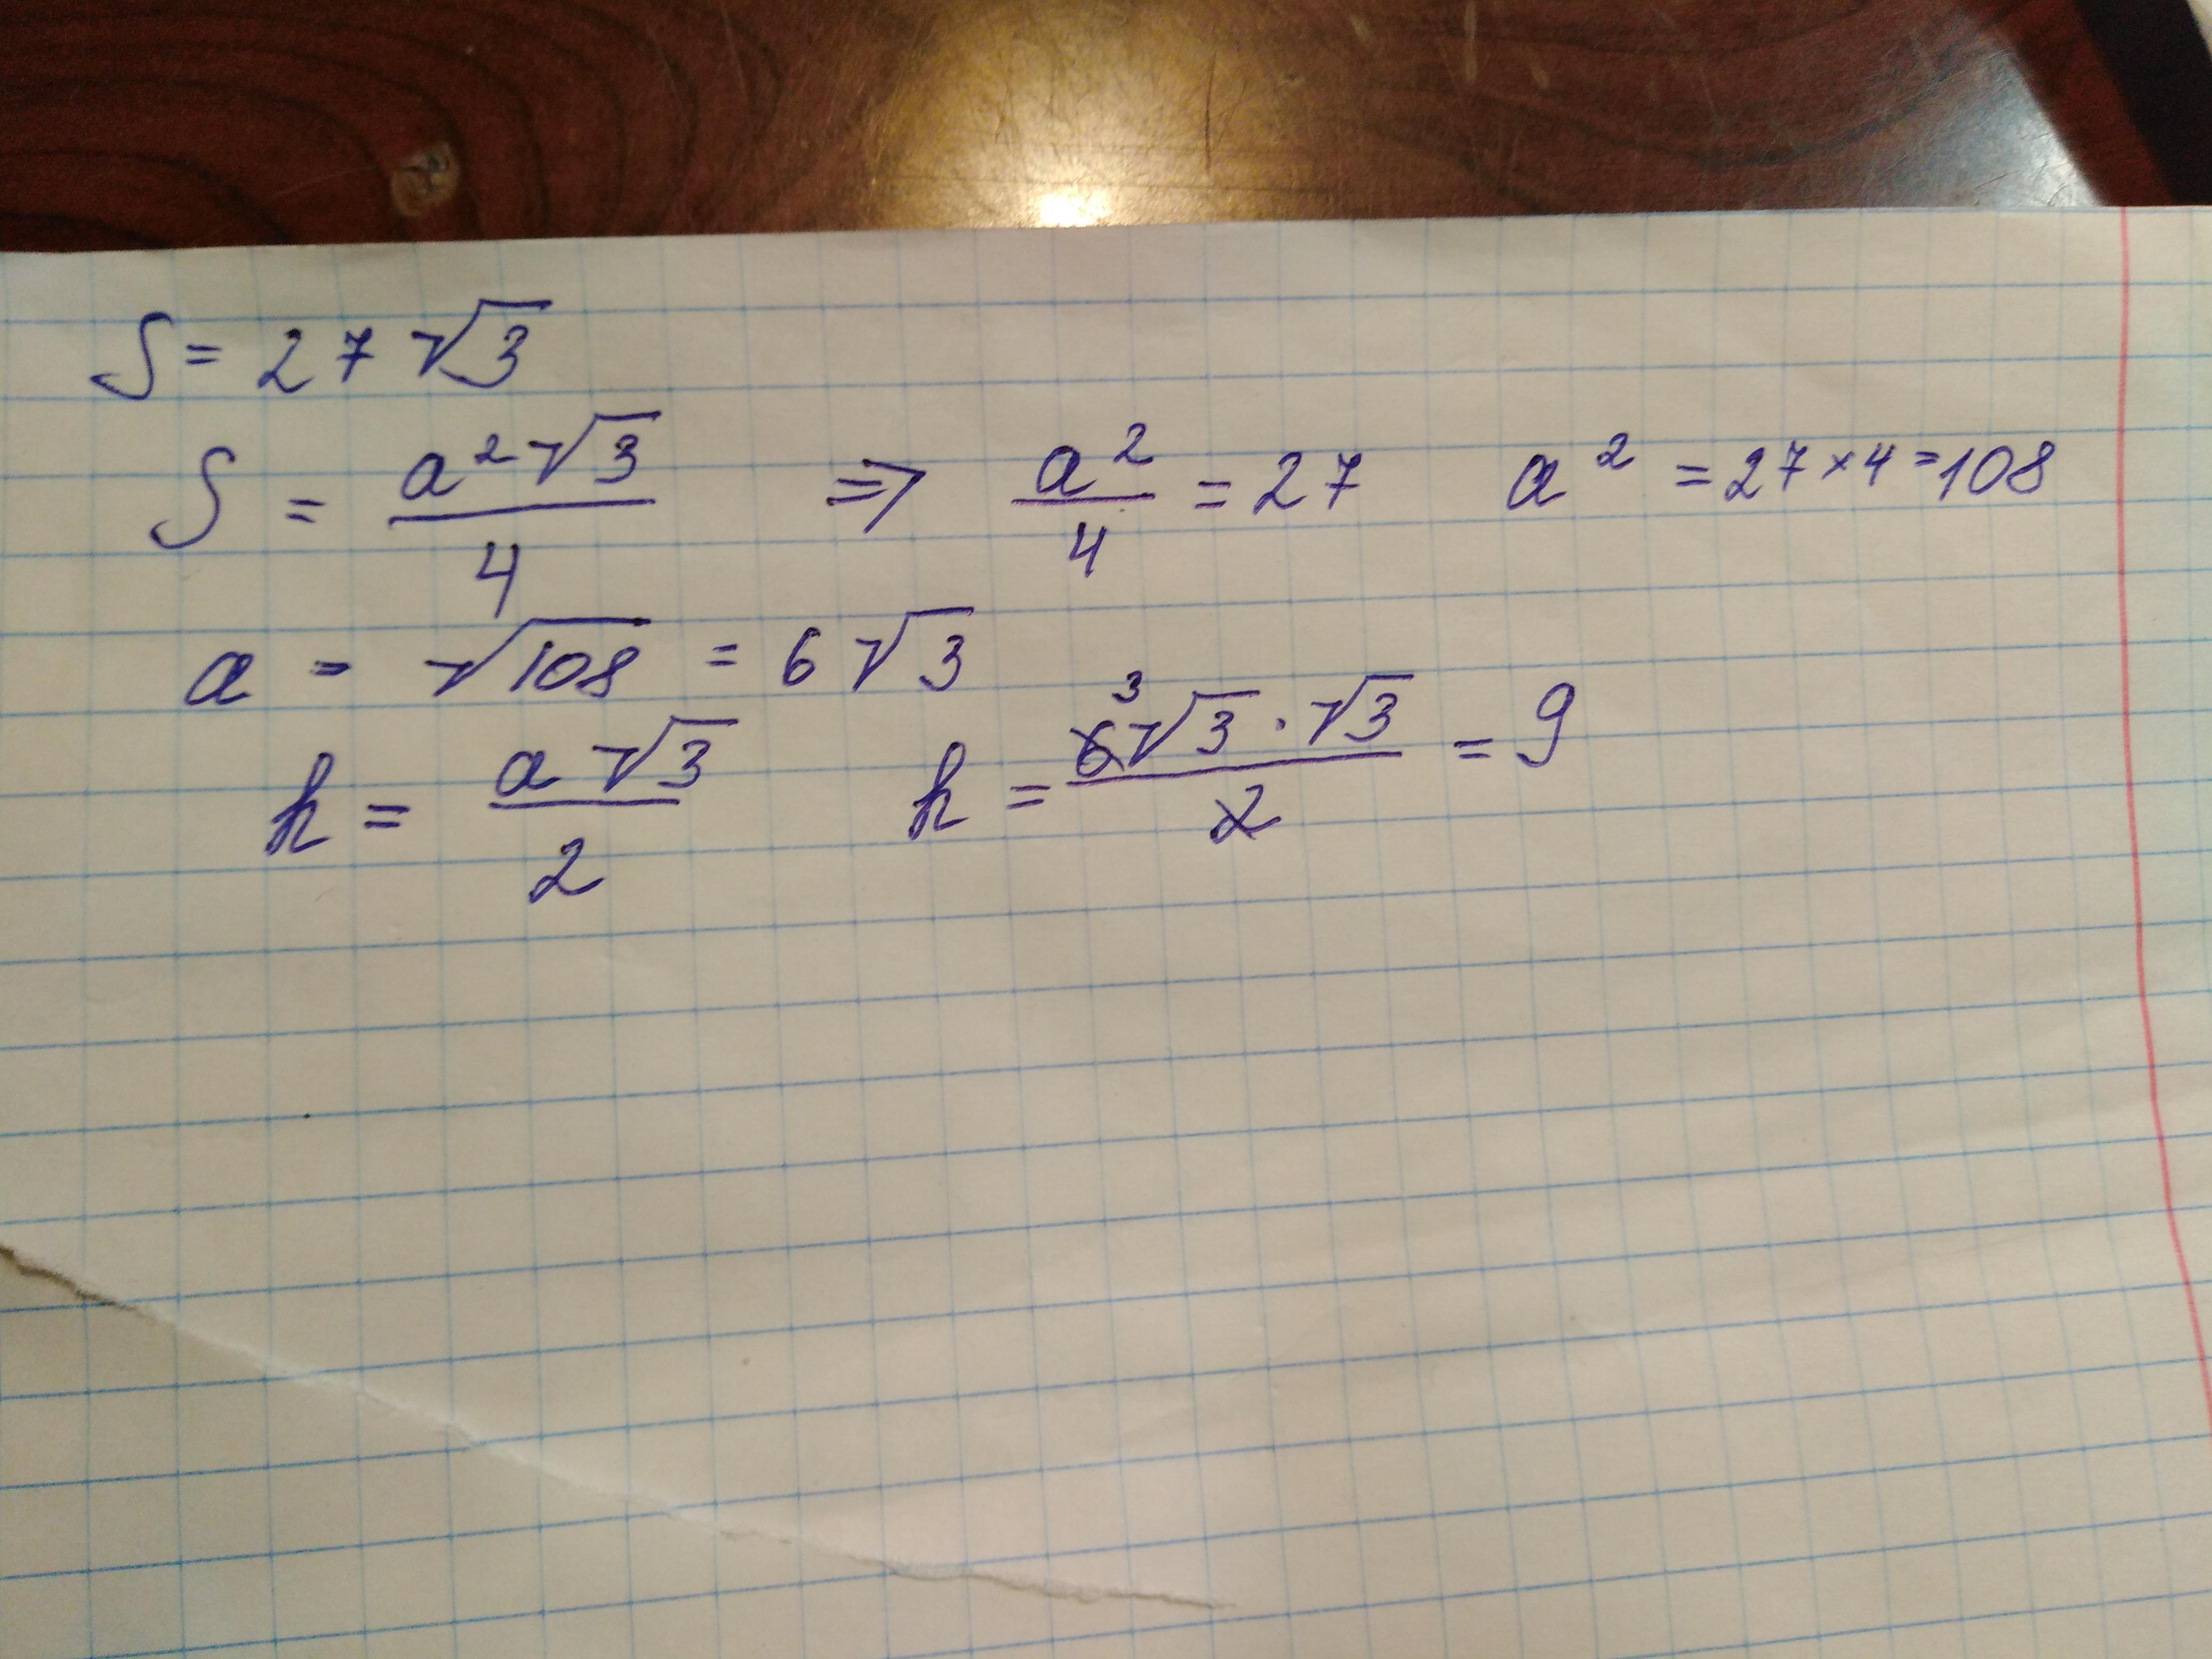 S = 27√3
S = a²√3/4 => a²/4 = 27 a² = 27 × 4 = 108
a = √108 = 6√3
h = a√3/2 h = 6√3 · √3/2 = 9
3